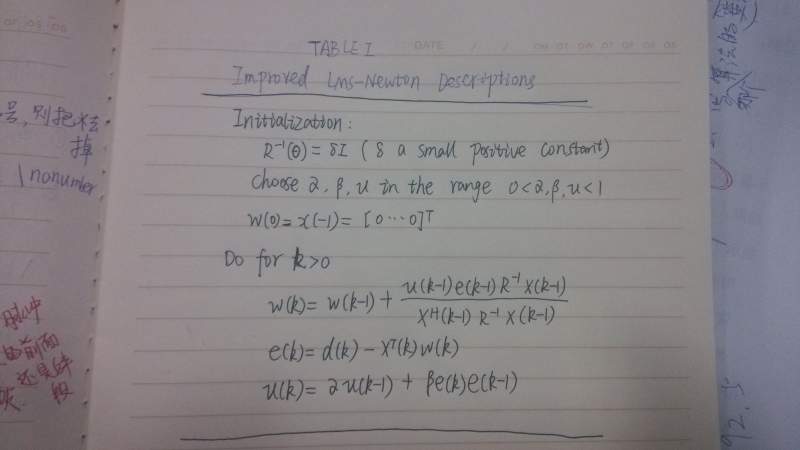 TABLE I
DATE / /
Improved Lms-Newton Descriptions
Initialization:
R⁻¹(0) = δI ( δ a small positive constant)
Choose α, β, u in the range 0<α,β,u<1
w(0) = x(-1) = [0 ⋯ 0]ᵀ
Do for k>0
w(k) = w(k-1) + u(k-1)e(k-1)R⁻¹x(k-1) / xᴴ(k-1) R⁻¹ x(k-1)
e(k) = d(k) - xᵀ(k)w(k)
u(k) = αu(k-1) + βe(k)e(k-1)
号,别把
掉
\nonumber
的前面
92.5